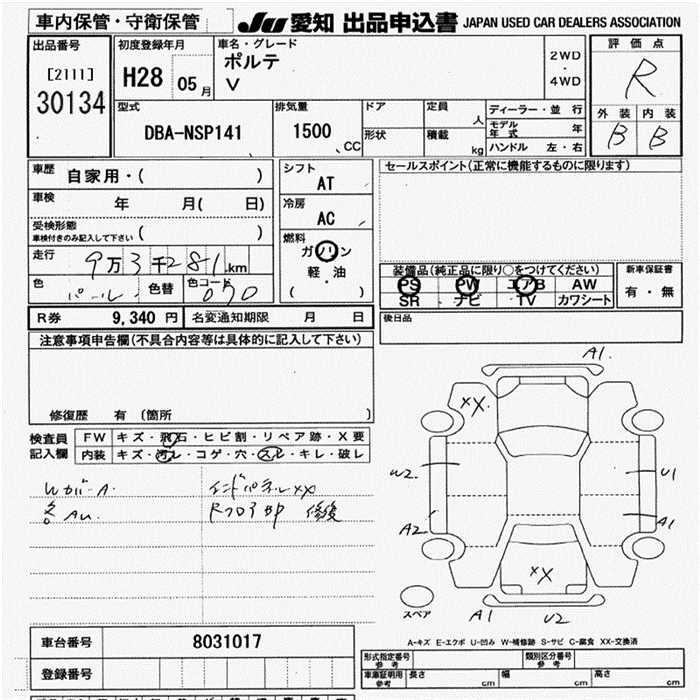 車内保管・守衛保管 JU 愛知 出品申込書 JAPAN USED CAR DEALERS ASSOCIATION
出品番号 初度登録年月 車名・グレード 評価点
[2111] H28 05月 ポルテ 2WD・4WD R
30134 V
外装 内装
型式 排気量 ドア 定員 人 ディーラー・並行 B B
DBA-NSP141 1500 CC 形状 積載 kg モデル年式 年
ハンドル 左・右
車歴 自家用・( ) シフト AT セールスポイント(正常に機能するものに限ります)
車検 年 月( 日) 冷房 AC
受検形態
車検付きのみ記入して下さい ( )
燃料 ガソリン
走行 9万3千281km 軽・油
( )
装備品(純正品に限り○をつけてください) 新車保証書
色 パール 色替 色コード 070 PS PW エアB AW 有・無
SR ナビ TV カワシート
R券 9,340 円 名変通知期限 月 日 後日品
注意事項申告欄(不具合内容等は具体的に記入して下さい)
修復歴 有 (箇所 )
検査員記入欄 FW キズ・飛石・ヒビ割・リペア跡・X要
内装 キズ・汚レ・コゲ・穴・スレ・キレ・破レ
WカバーA インドパネルXX
各AU Rフロア部 修復
A1
XX
W2 U1
A2 A1
XX
スペア A1 U2
A-キズ E-エクボ U-凹み W-補修跡 S-サビ C-腐食 XX-交換済
車台番号 8031017 形式指定番号 参考 類別区分番号 参考
登録番号 車庫証明用 参考 長さ cm 幅 cm 高さ cm